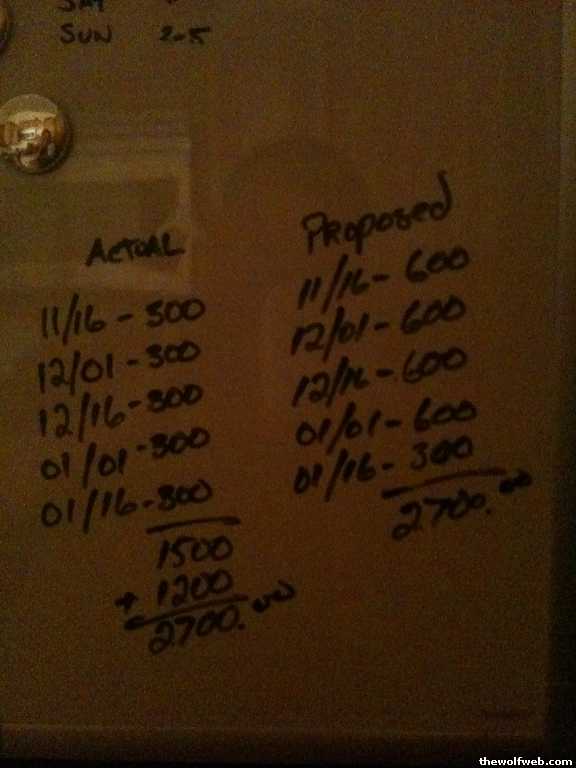 SAT
SUN 2-5
ACTUAL
11/16 - 300
12/01 - 300
12/16 - 300
01/01 - 300
01/16 - 300
1500
+ 1200
2700.00
Proposed
11/16 - 600
12/01 - 600
12/16 - 600
01/01 - 600
01/16 - 300
2700.00
thewolfweb.com